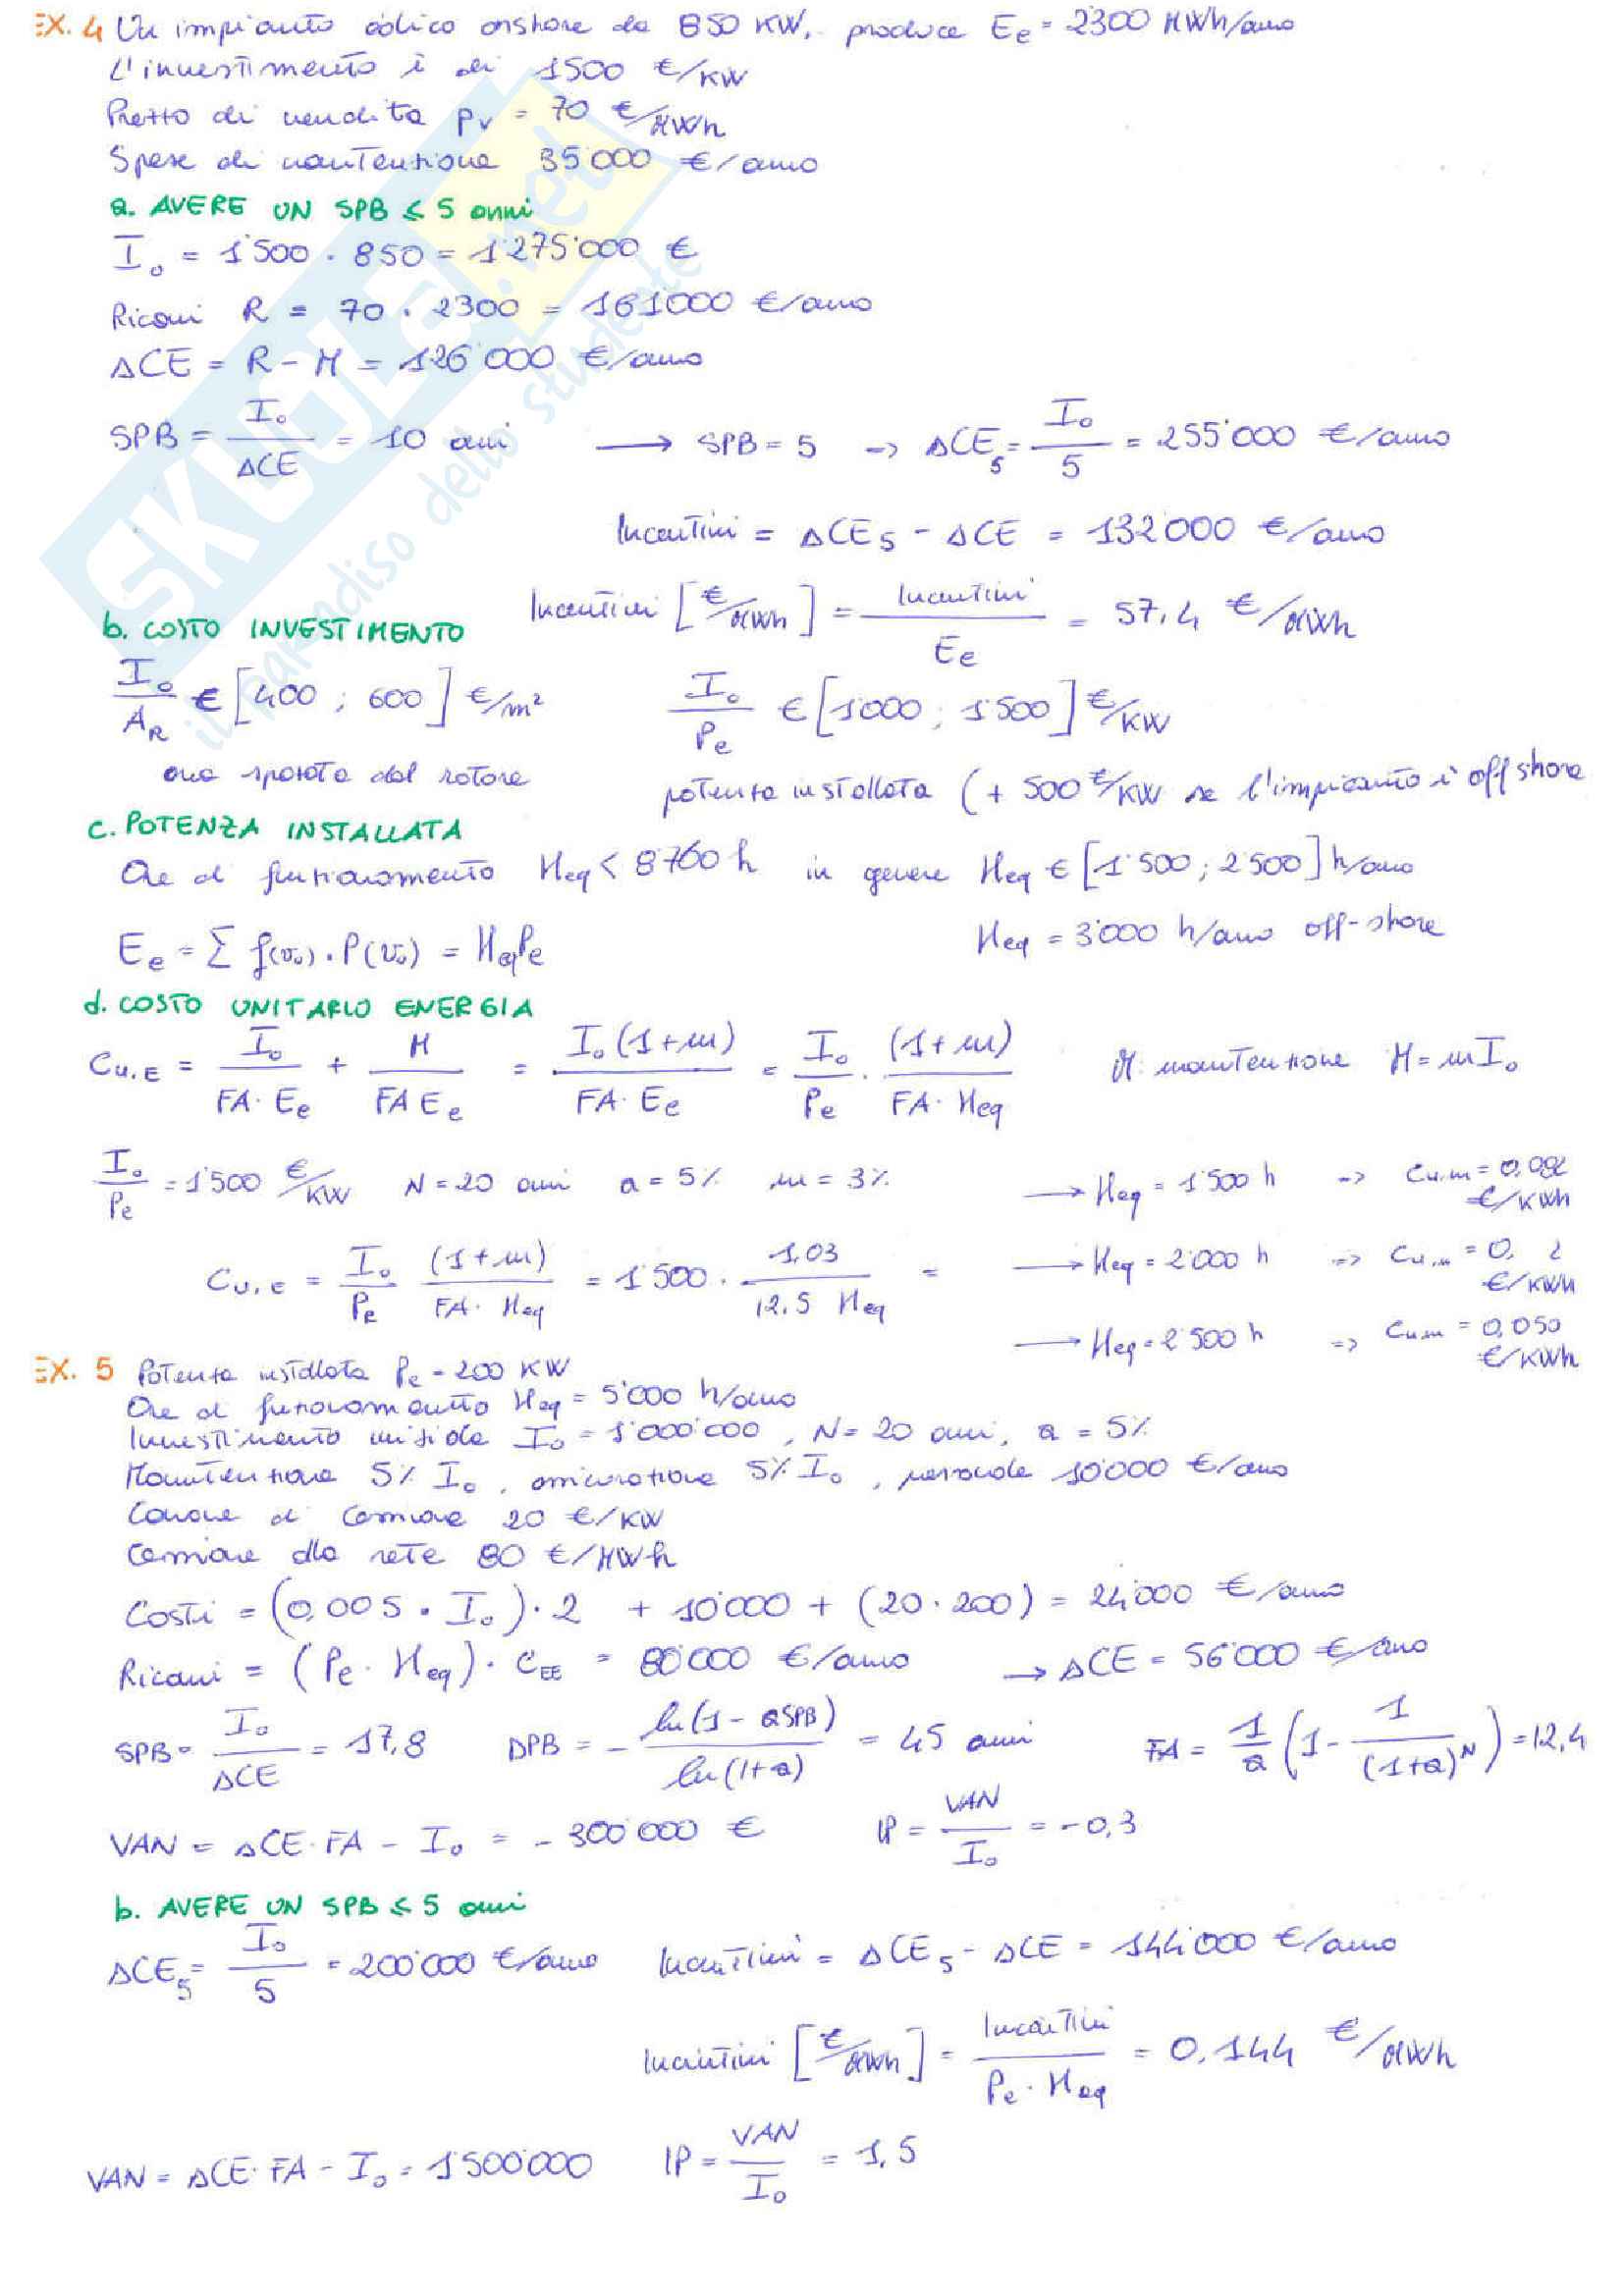 EX. 4 Un impianto eolico onshore da 850 KW, produce Ee = 2300 MWh/anno
L'investimento è di 1500 €/KW
Prezzo di vendita pv = 70 €/MWh
Spese di manutenzione 35'000 €/anno
a. AVERE UN SPB ≤ 5 anni
I₀ = 1'500 · 850 = 1'275'000 €
Ricavi R = 70 · 2300 = 161'000 €/anno
ΔCE = R - M = 126'000 €/anno
SPB = I₀/ΔCE = 10 anni → SPB = 5 → ΔCE₅ = I₀/5 = 255'000 €/anno
Incentivi = ΔCE₅ - ΔCE = 132'000 €/anno
Incentivi [€/MWh] = Incentivi/Ee = 57,4 €/MWh
b. COSTO INVESTIMENTO
I₀/A_R ∈ [400 ; 600] €/m² I₀/Pe ∈ [1'000 ; 1'500] €/KW
area spazzata dal rotore potenza installata (+ 500 €/KW se l'impianto è off shore
c. POTENZA INSTALLATA
Ore di funzionamento Heq < 8'760 h in genere Heq ∈ [1'500 ; 2'500] h/anno
Ee = Σ f(v₀) · P(v₀) = Heq Pe Heq = 3'000 h/anno off-shore
d. COSTO UNITARIO ENERGIA
Cu,E = I₀/(FA · Ee) + M/(FA Ee) = I₀(1+m)/(FA · Ee) = I₀/Pe · (1+m)/(FA · Heq) M: manutenzione M = mI₀
I₀/Pe = 1'500 €/KW N = 20 anni a = 5% m = 3% → Heq = 1'500 h → Cu,m = 0,082 €/KWh
Cu,E = I₀/Pe (1+m)/(FA · Heq) = 1'500 · 1,03/(12,5 Heq) = → Heq = 2'000 h => Cu,m = 0, 2 €/KWh
→ Heq = 2'500 h => Cu,m = 0,050 €/KWh
EX. 5 Potenza installata Pe = 200 KW
Ore di funzionamento Heq = 5'000 h/anno
Investimento iniziale I₀ = 1'000'000, N = 20 anni, a = 5%
Manutenzione 5% I₀, assicurazione 5% I₀, personale 10'000 €/anno
Canone di 20 €/KW
Cessione alla rete 80 €/MWh
Costi = (0,005 · I₀) · 2 + 10'000 + (20 · 200) = 24'000 €/anno
Ricavi = (Pe · Heq) · C_EE = 80'000 €/anno → ΔCE = 56'000 €/anno
SPB = I₀/ΔCE = 17,8 DPB = - ln(1 - aSPB)/ln(1+a) = 45 anni FA = 1/a (1 - 1/(1+a)^N) = 12,4
VAN = ΔCE · FA - I₀ = - 300'000 € IP = VAN/I₀ = -0,3
b. AVERE UN SPB ≤ 5 anni
ΔCE₅ = I₀/5 = 200'000 €/anno Incentivi = ΔCE₅ - ΔCE = 144'000 €/anno
Incentivi [€/MWh] = Incentivi/(Pe · Heq) = 0,144 €/MWh
VAN = ΔCE · FA - I₀ = 1'500'000 IP = VAN/I₀ = 1,5
SKUOLA.net
il paradiso dello studente